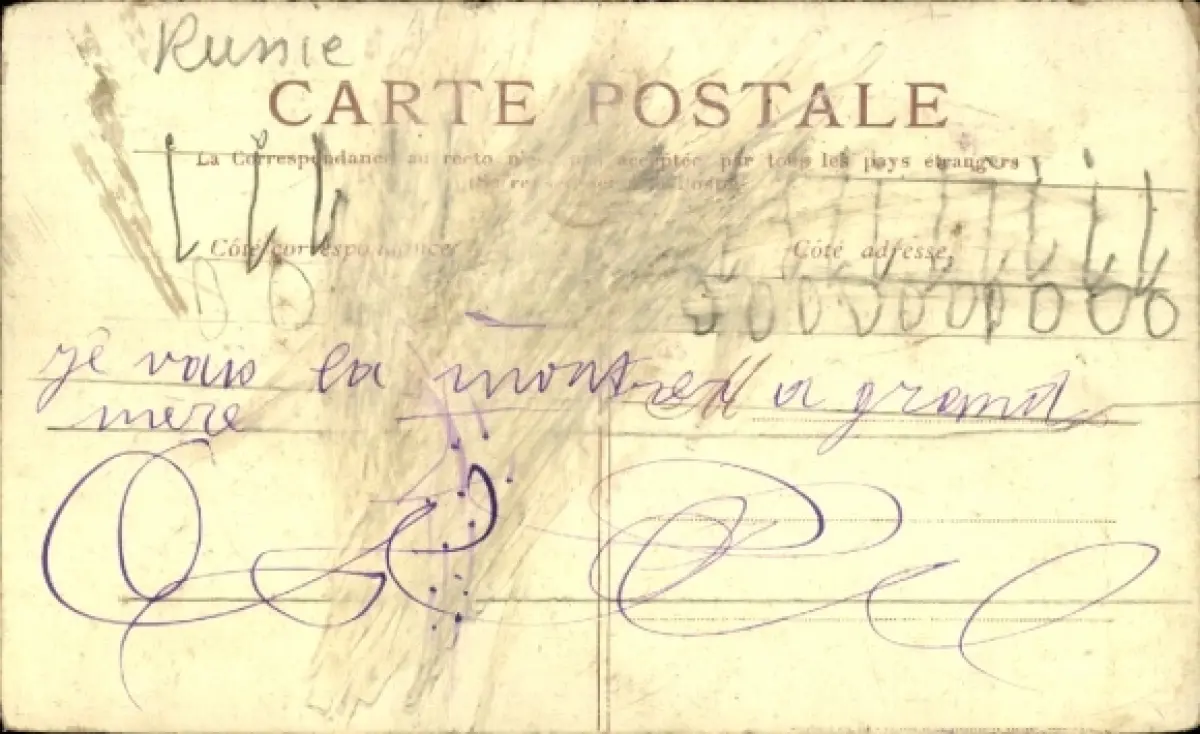 Russie
CARTE POSTALE
La Correspondance au recto n'est pas acceptée par tous les pays étrangers
Côté correspondance
Côté adresse
je vais la montrer a grand
mere